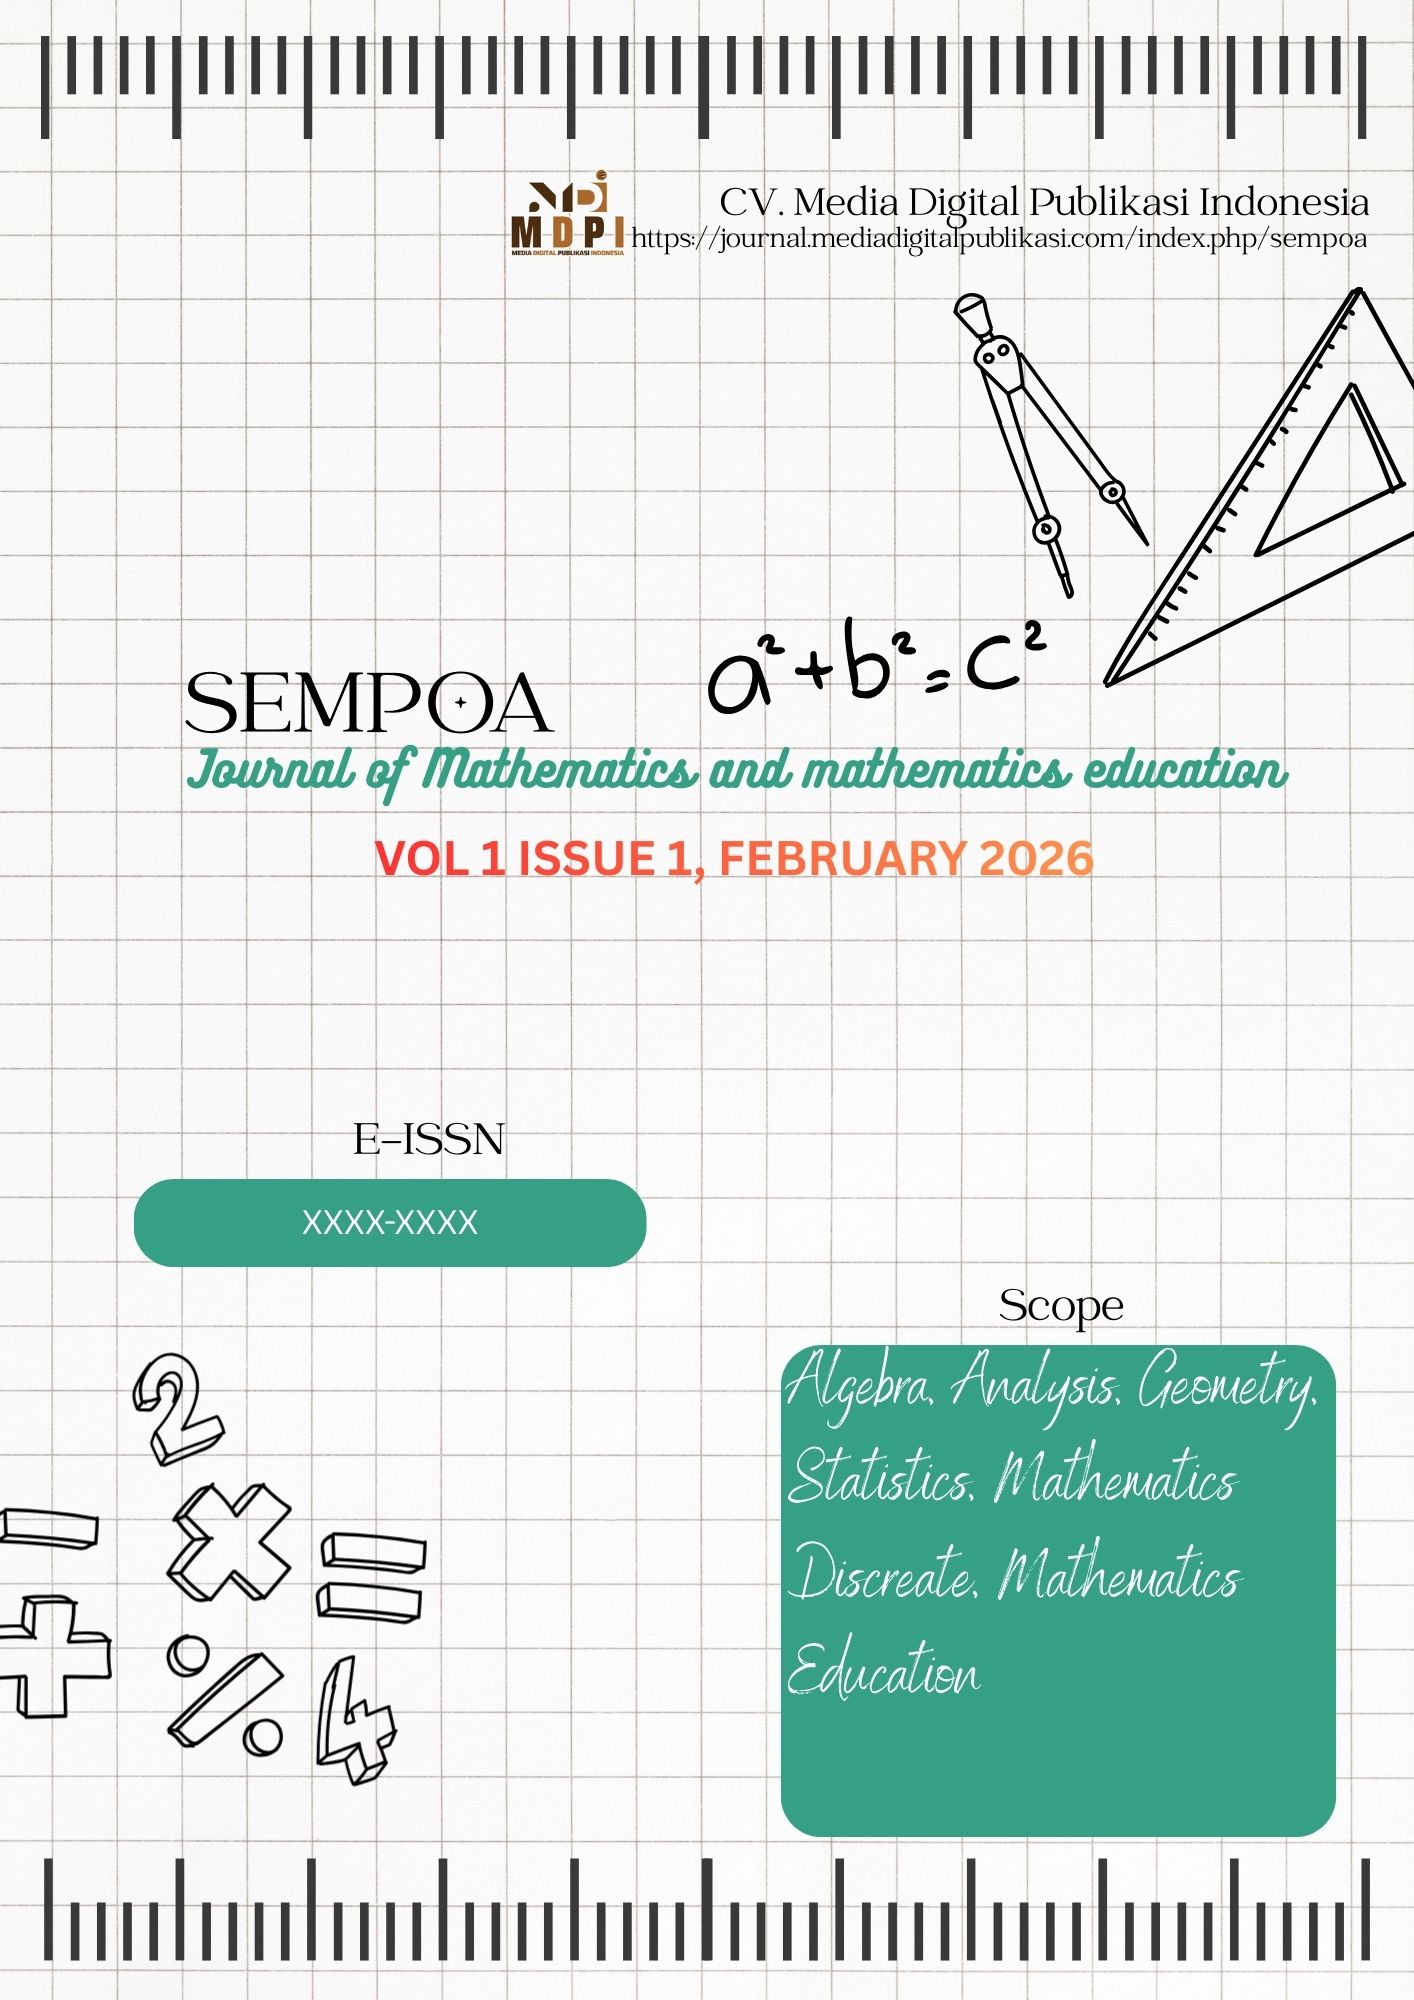 CV. Media Digital Publikasi Indonesia
MDPI
MEDIA DIGITAL PUBLIKASI INDONESIA
https://journal.mediadigitalpublikasi.com/index.php/sempoa
a²+b²=c²
SEMPOA
Journal of Mathematics and mathematics education
VOL 1 ISSUE 1, FEBRUARY 2026
E-ISSN
XXXX-XXXX
Scope
Algebra, Analysis, Geometry,
Statistics, Mathematics
Discreate, Mathematics
Education
2
- × =
+ % 4